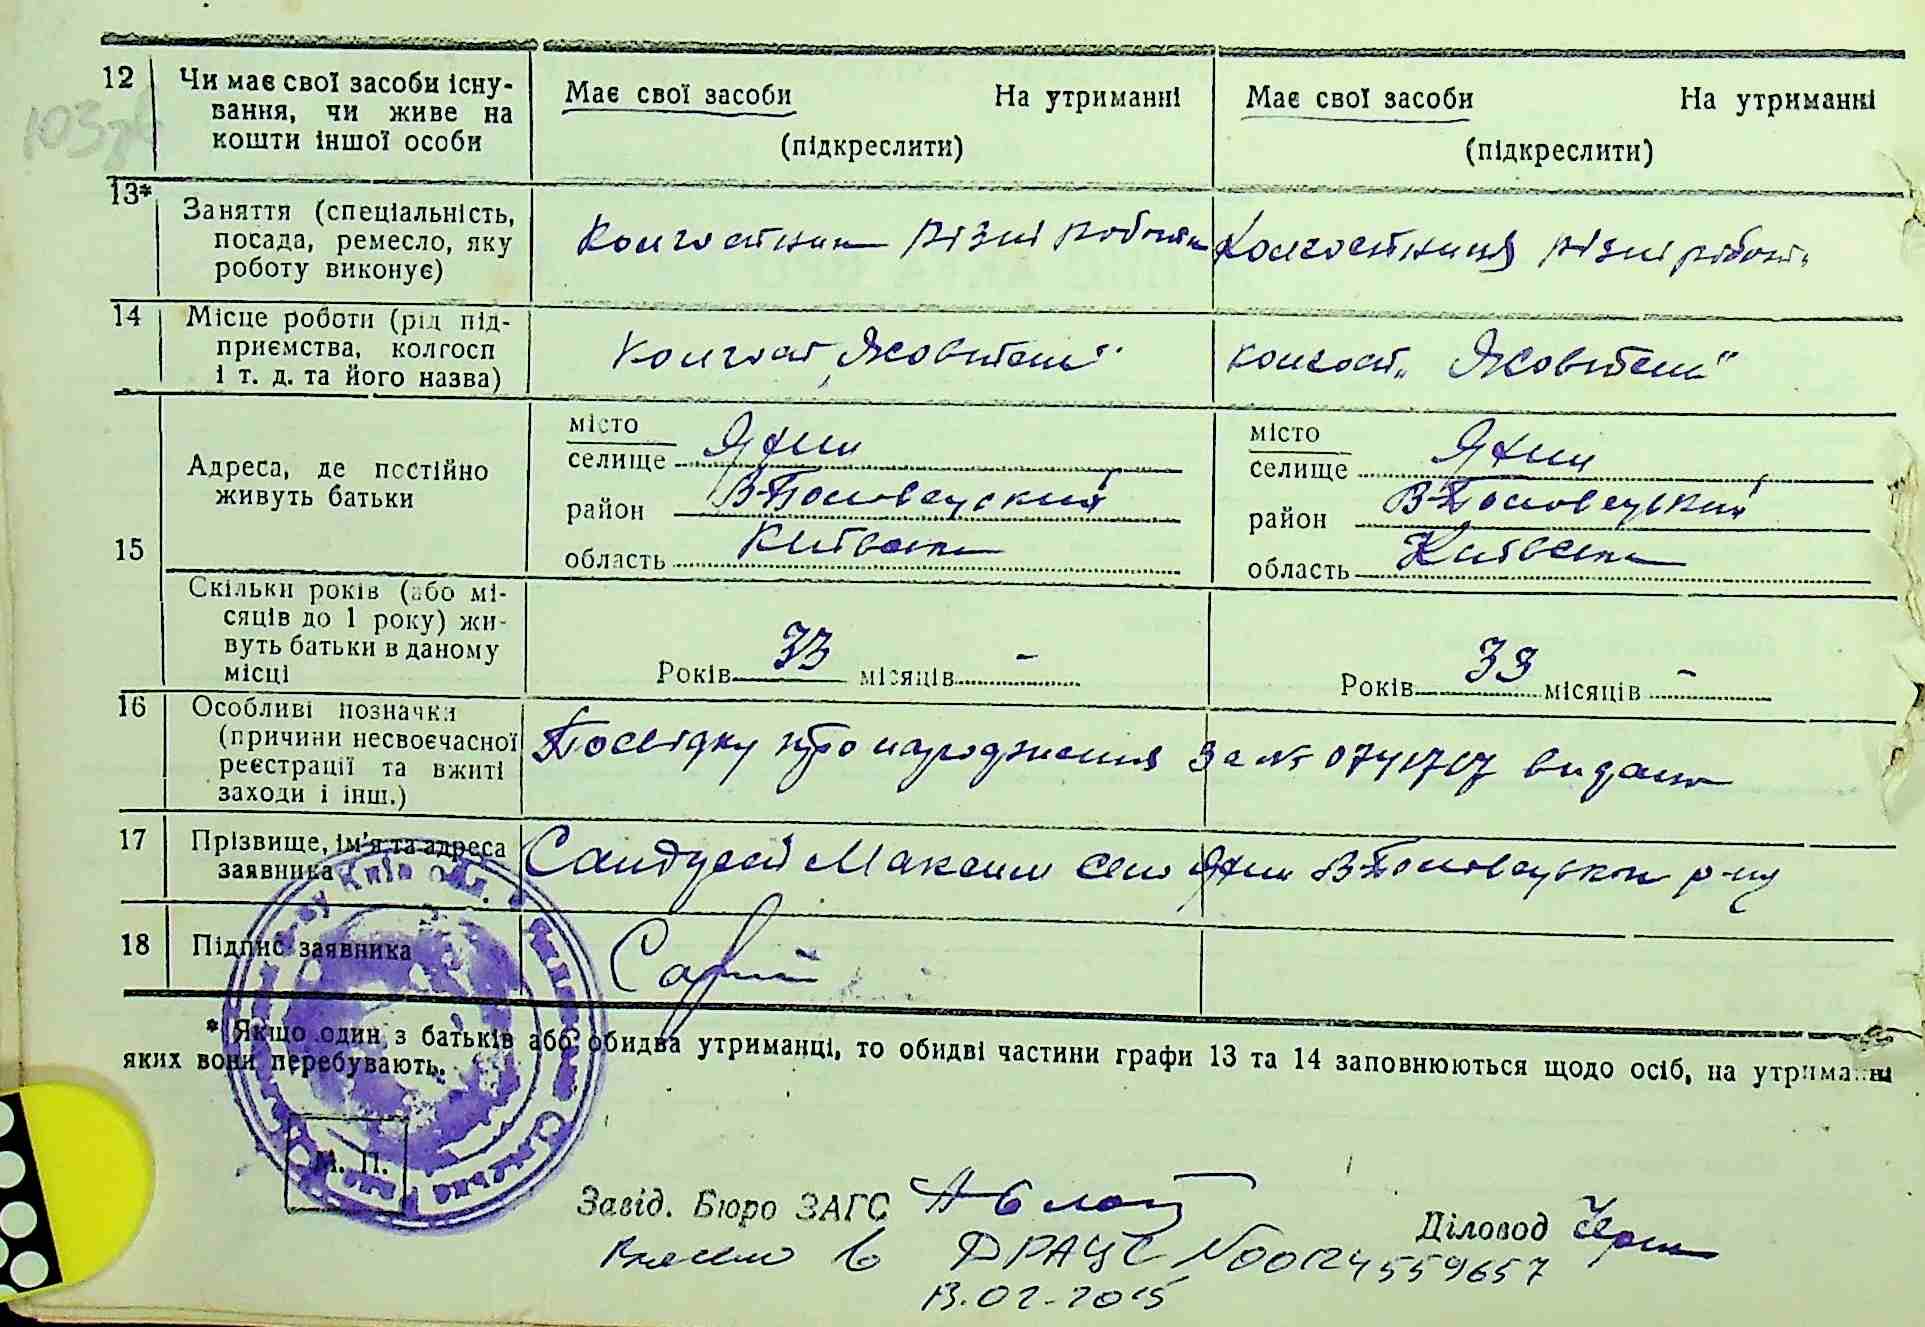 12 Чи має свої засоби існу-
вання, чи живе на
кошти іншої особи
Має свої засоби На утриманні
(підкреслити)
Має свої засоби На утриманні
(підкреслити)
13* Заняття (спеціальність,
посада, ремесло, яку
роботу виконує)
Колгоспник різні роботи
Колгоспниця різні роботи
14 Місце роботи (рід під-
приємства, колгосп
і т. д. та його назва)
Колгосп „Жовтень"
колгосп „Жовтень"
15 Адреса, де постійно
живуть батьки
місто
селище Яхни
район
область Київська
місто
селище Яхни
район
область Київська
Скільки років (або мі-
сяців до 1 року) жи-
вуть батьки в даному
місці
Років 33 місяців -
Років 33 місяців -
16 Особливі позначки
(причини несвоєчасної
реєстрації та вжиті
заходи і інш.)
Посвідку про народження за № видано
17 Прізвище, ім'я та адреса
заявника
Максим село Яхни р-ну
18 Підпис заявника
* Якщо один з батьків або обидва утриманці, то обидві частини графи 13 та 14 заповнюються щодо осіб, на утриманні
яких вони перебувають.
М. П.
Завід. Бюро ЗАГС
Діловод
Внесено в ДРАЦС №00124559657
13.02.2015